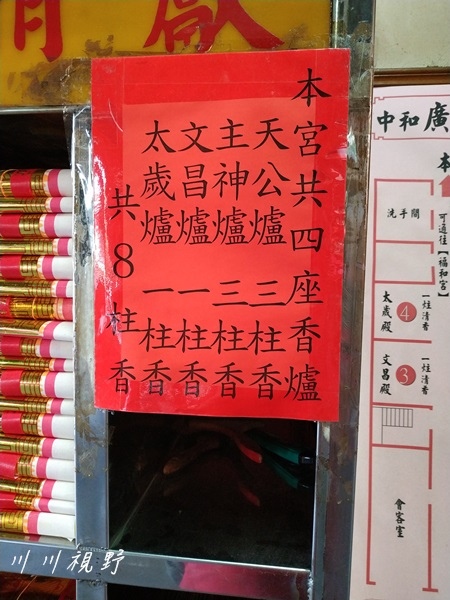 本宮共四座香爐
天公爐 三柱香
主神爐 三柱香
文昌爐 一柱香
太歲爐 一柱香
共8柱香
中和廣
本
洗手間
可通往【福和宮】
太歲殿
4
一炷清香
文昌殿
3
一炷清香
會客室
川川視野